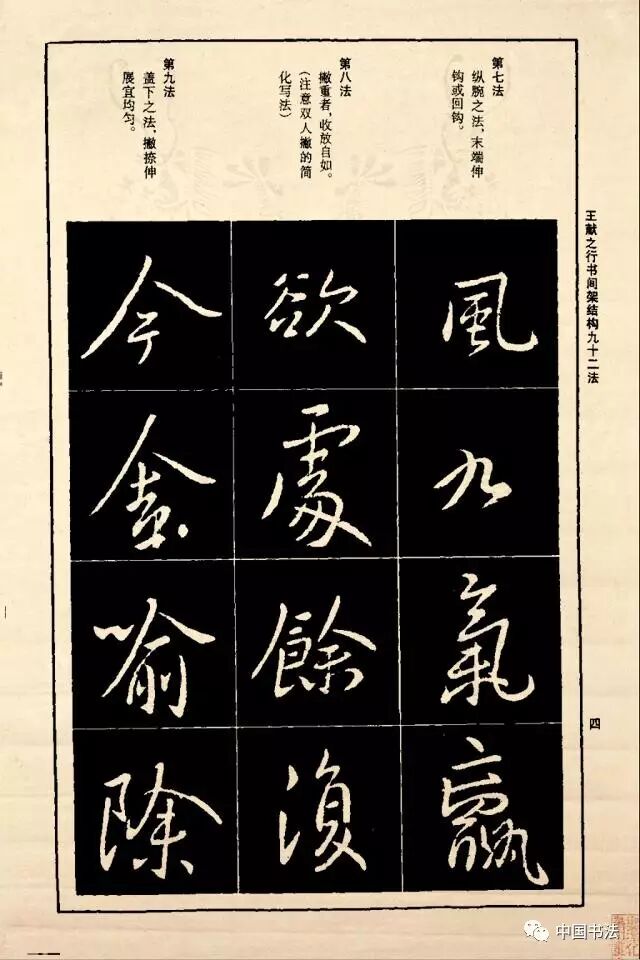 王献之行书间架结构九十二法
四
第七法
纵腕之法，末端伸
钩或回钩。
風
九
氣
第八法
撇重者，收放自如。
（注意双人撇的简
化写法）
欲
處
餘
復
第九法
盖下之法，撇捺伸
展宜均匀。
今
喻
除
中国书法